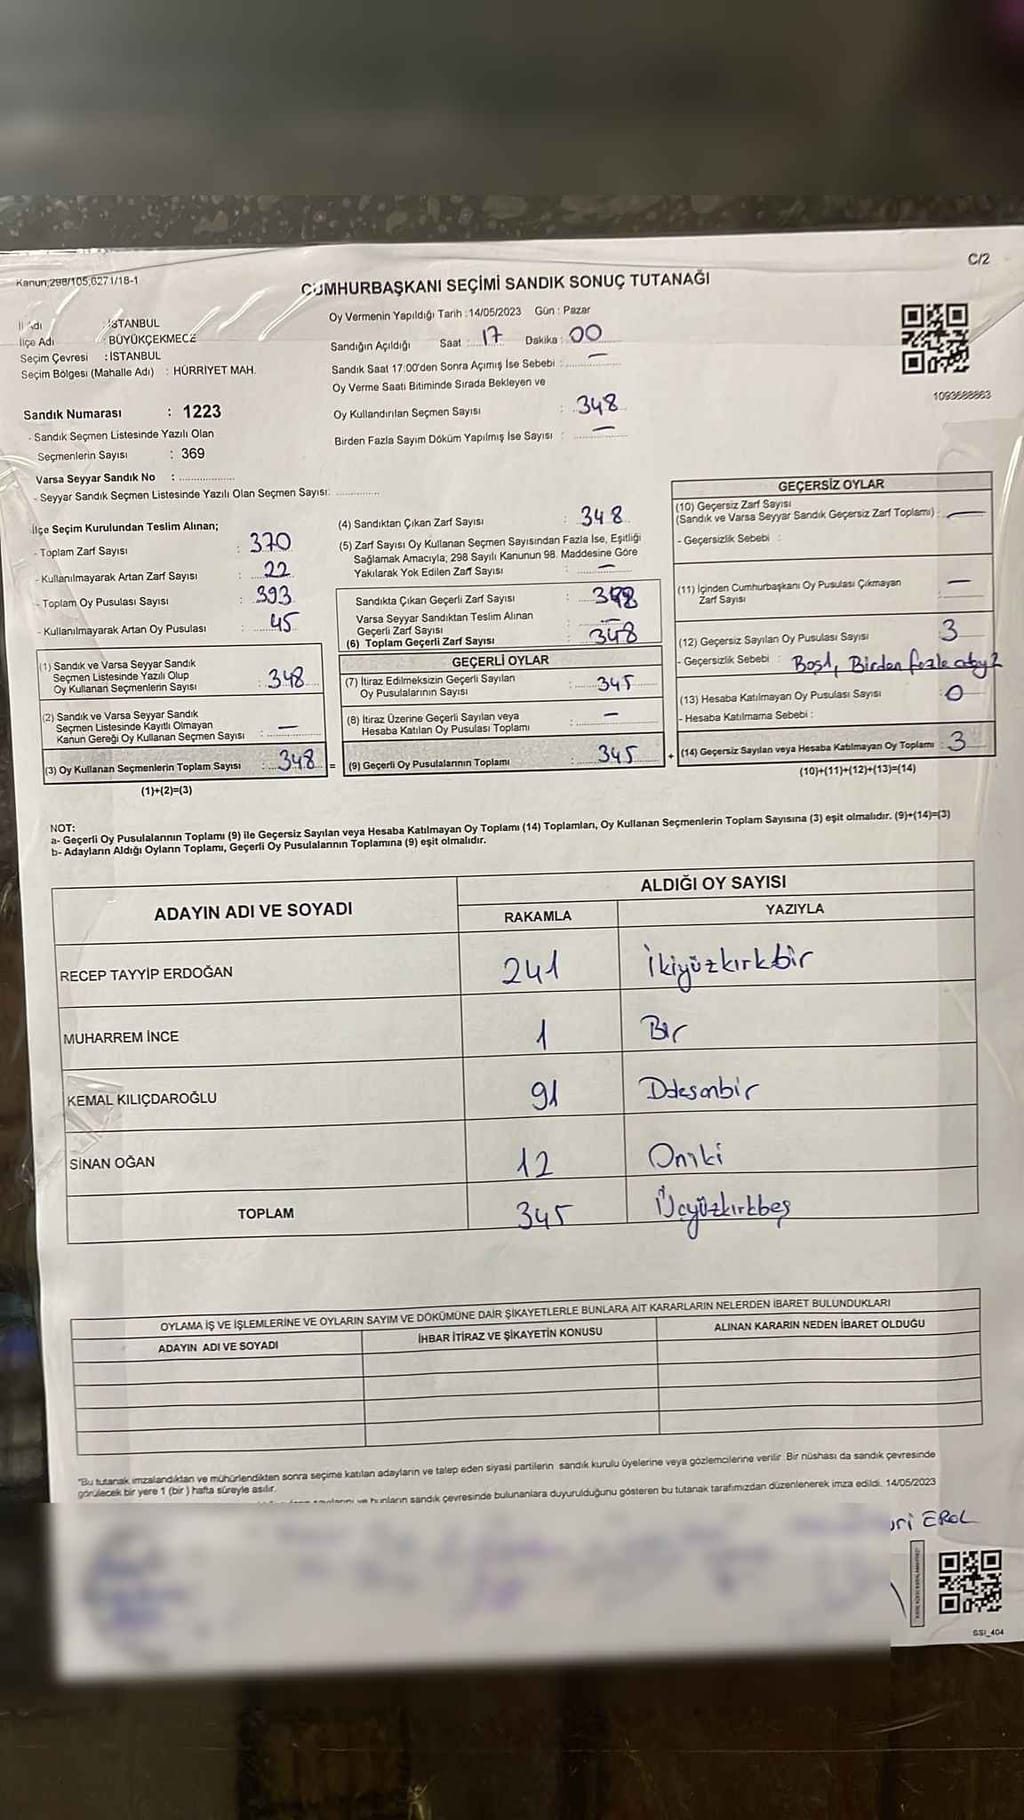 C/2
Kanun;298/105;6271/18-1
CUMHURBAŞKANI SEÇİMİ SANDIK SONUÇ TUTANAĞI
İl Adı : İSTANBUL
İlçe Adı : BÜYÜKÇEKMECE
Seçim Çevresi : İSTANBUL
Seçim Bölgesi (Mahalle Adı) : HÜRRİYET MAH.
Sandık Numarası : 1223
- Sandık Seçmen Listesinde Yazılı Olan
Seçmenlerin Sayısı : 369
Varsa Seyyar Sandık No :
- Seyyar Sandık Seçmen Listesinde Yazılı Olan Seçmen Sayısı:
Oy Vermenin Yapıldığı Tarih : 14/05/2023 Gün : Pazar
Sandığın Açıldığı Saat : 17 Dakika : 00
Sandık Saat 17:00'den Sonra Açımış İse Sebebi : —
Oy Verme Saati Bitiminde Sırada Bekleyen ve
Oy Kullandırılan Seçmen Sayısı : 348
Birden Fazla Sayım Döküm Yapılmış İse Sayısı : —
1093688863
İlçe Seçim Kurulundan Teslim Alınan;
- Toplam Zarf Sayısı : 370
- Kullanılmayarak Artan Zarf Sayısı : 22
- Toplam Oy Pusulası Sayısı : 393
- Kullanılmayarak Artan Oy Pusulası : 45
(1) Sandık ve Varsa Seyyar Sandık
Seçmen Listesinde Yazılı Olup
Oy Kullanan Seçmenlerin Sayısı : 348
(2) Sandık ve Varsa Seyyar Sandık
Seçmen Listesinde Kayıtlı Olmayan
Kanun Gereği Oy Kullanan Seçmen Sayısı : —
(3) Oy Kullanan Seçmenlerin Toplam Sayısı : 348 =
(1)+(2)=(3)
(4) Sandıktan Çıkan Zarf Sayısı : 348
(5) Zarf Sayısı Oy Kullanan Seçmen Sayısından Fazla İse, Eşitliği
Sağlamak Amacıyla, 298 Sayılı Kanunun 98. Maddesine Göre
Yakılarak Yok Edilen Zarf Sayısı : —
Sandıkta Çıkan Geçerli Zarf Sayısı : 348
Varsa Seyyar Sandıktan Teslim Alınan
Geçerli Zarf Sayısı : —
(6) Toplam Geçerli Zarf Sayısı : 348
GEÇERLİ OYLAR
(7) İtiraz Edilmeksizin Geçerli Sayılan
Oy Pusulalarının Sayısı : 345
(8) İtiraz Üzerine Geçerli Sayılan veya
Hesaba Katılan Oy Pusulası Toplamı : —
(9) Geçerli Oy Pusulalarının Toplamı : 345 +
GEÇERSİZ OYLAR
(10) Geçersiz Zarf Sayısı
(Sandık ve Varsa Seyyar Sandık Geçersiz Zarf Toplamı) : —
- Geçersizlik Sebebi :
(11) İçinden Cumhurbaşkanı Oy Pusulası Çıkmayan
Zarf Sayısı : —
(12) Geçersiz Sayılan Oy Pusulası Sayısı : 3
- Geçersizlik Sebebi : Boş1, Birden fazla aday2
(13) Hesaba Katılmayan Oy Pusulası Sayısı : 0
- Hesaba Katılmama Sebebi :
(14) Geçersiz Sayılan veya Hesaba Katılmayan Oy Toplamı : 3
(10)+(11)+(12)+(13)=(14)
NOT:
a- Geçerli Oy Pusulalarının Toplamı (9) ile Geçersiz Sayılan veya Hesaba Katılmayan Oy Toplamı (14) Toplamları, Oy Kullanan Seçmenlerin Toplam Sayısına (3) eşit olmalıdır. (9)+(14)=(3)
b- Adayların Aldığı Oyların Toplamı, Geçerli Oy Pusulalarının Toplamına (9) eşit olmalıdır.
ADAYIN ADI VE SOYADI ALDIĞI OY SAYISI
RAKAMLA YAZIYLA
RECEP TAYYİP ERDOĞAN 241 İkiyüzkırkbir
MUHARREM İNCE 1 Bir
KEMAL KILIÇDAROĞLU 91 Doksanbir
SİNAN OĞAN 12 Oniki
TOPLAM 345 Üçyüzkırkbeş
OYLAMA İŞ VE İŞLEMLERİNE VE OYLARIN SAYIM VE DÖKÜMÜNE DAİR ŞİKAYETLERLE BUNLARA AİT KARARLARIN NELERDEN İBARET BULUNDUKLARI
ADAYIN ADI VE SOYADI İHBAR İTİRAZ VE ŞİKAYETİN KONUSU ALINAN KARARIN NEDEN İBARET OLDUĞU
"Bu tutanak imzalandıktan ve mühürlendikten sonra seçime katılan adayların ve talep eden siyasi partilerin sandık kurulu üyelerine veya gözlemcilerine verilir. Bir nüshası da sandık çevresinde
görülecek bir yere 1 (bir) hafta süreyle asılır.
ve bunların sandık çevresinde bulunanlara duyurulduğunu gösteren bu tutanak tarafımızdan düzenlenerek imza edildi. 14/05/2023
EROL
SSI_404